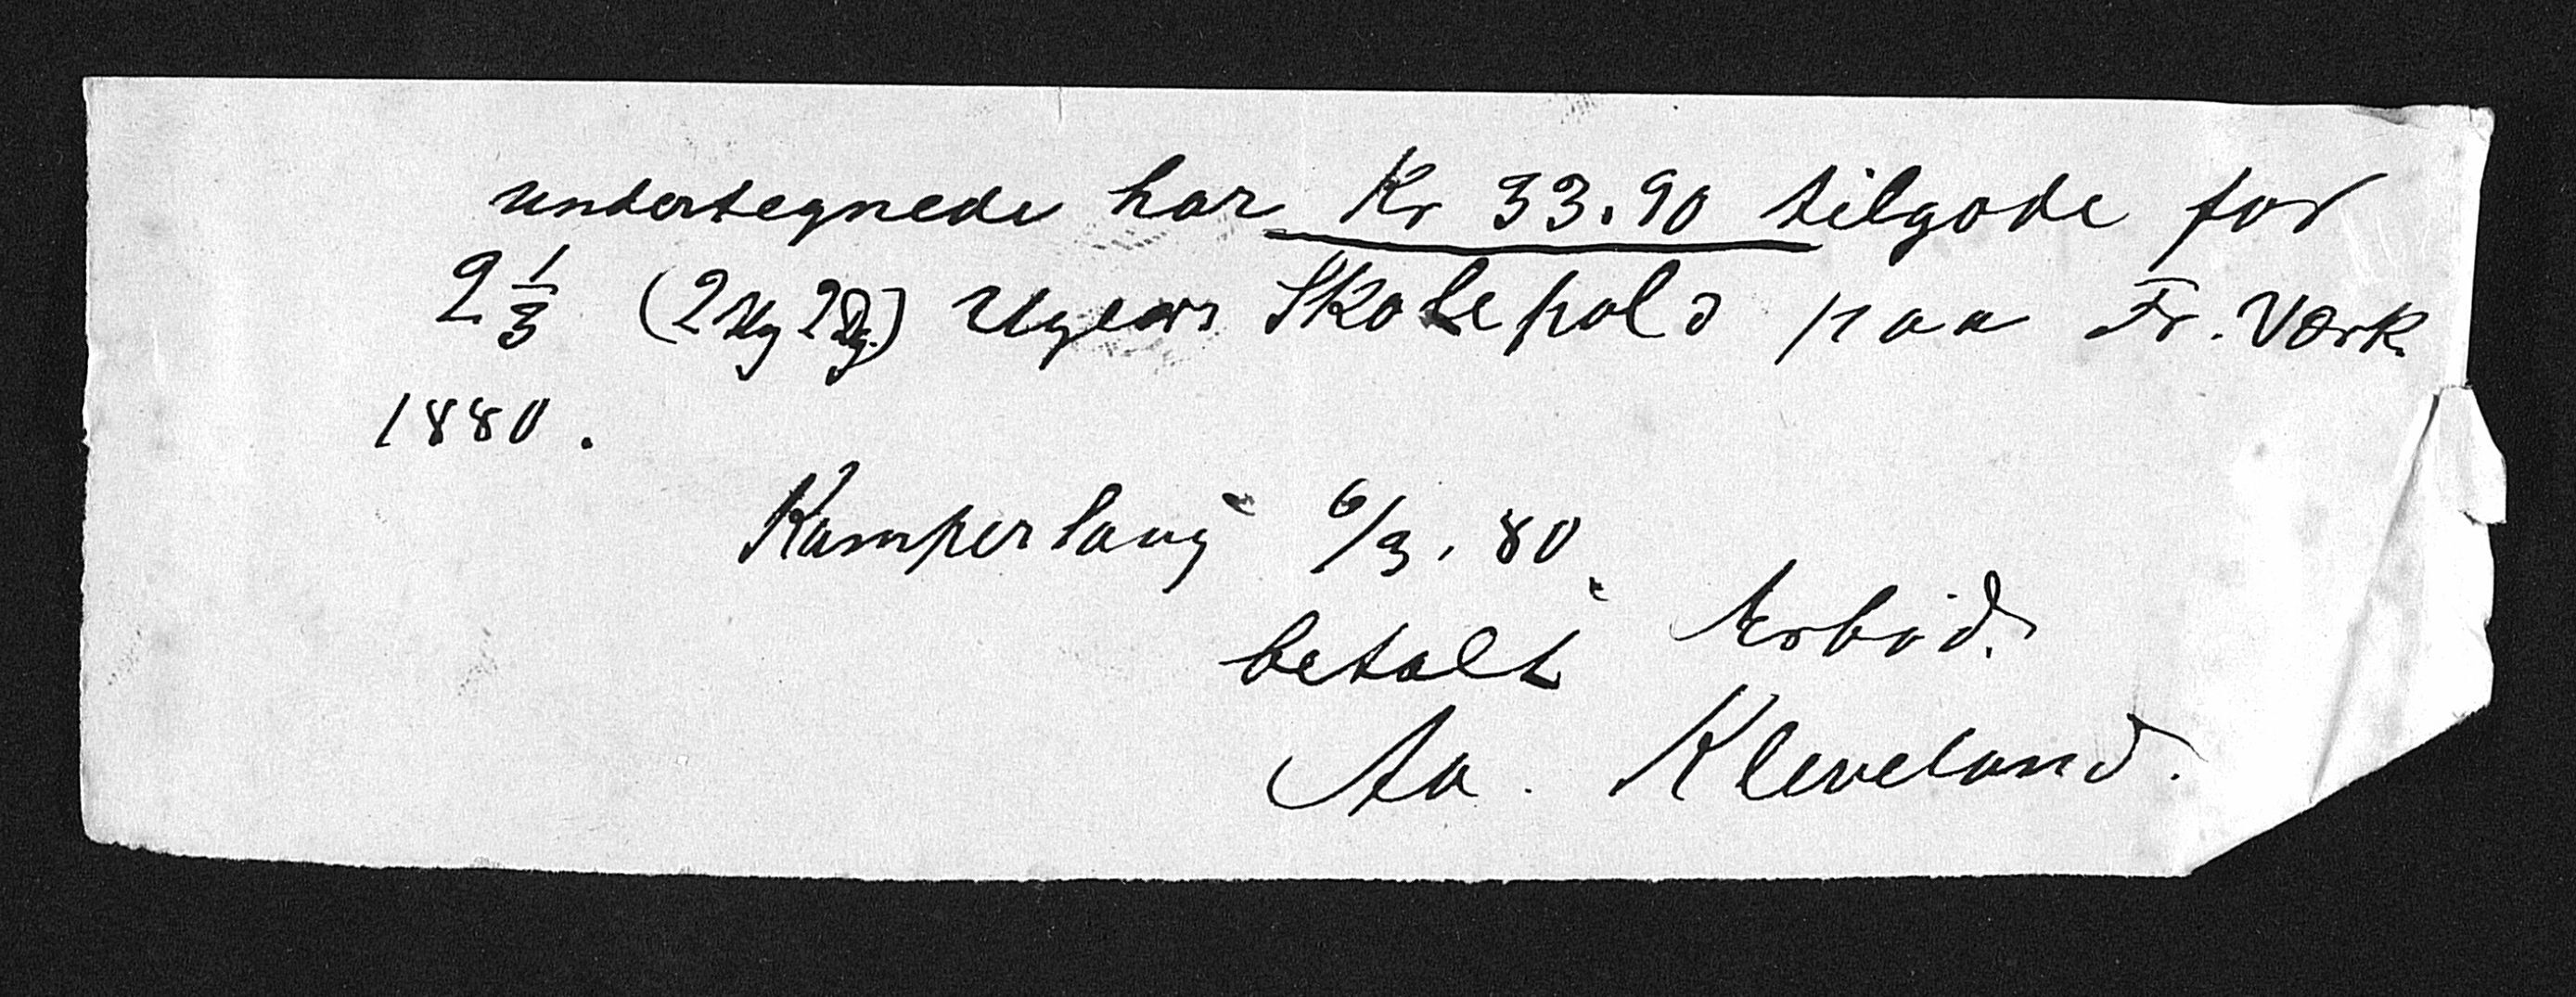 undertegnede har Kr 33.90 tilgode for
2 1/3 (2 Ug 2 Dg.) Ugers Skolehold paa Fr. Værk
1880.
Kamperhaug 6/3. 80.
Ærbød.
betalt
Aa. Kleveland.